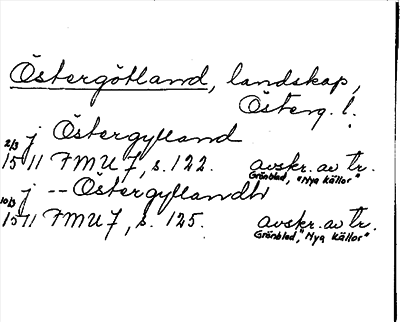 Östergötland, landskap,
Österg. l.
j Östergylland
2/3 1511 FMU 7, s. 122. avskr. av tr.
Grönblad, "Nya Källor"
j -- Östergyllandh
10/3 1511 FMU 7, s. 125. avskr. av tr.
Grönblad, "Nya Källor"